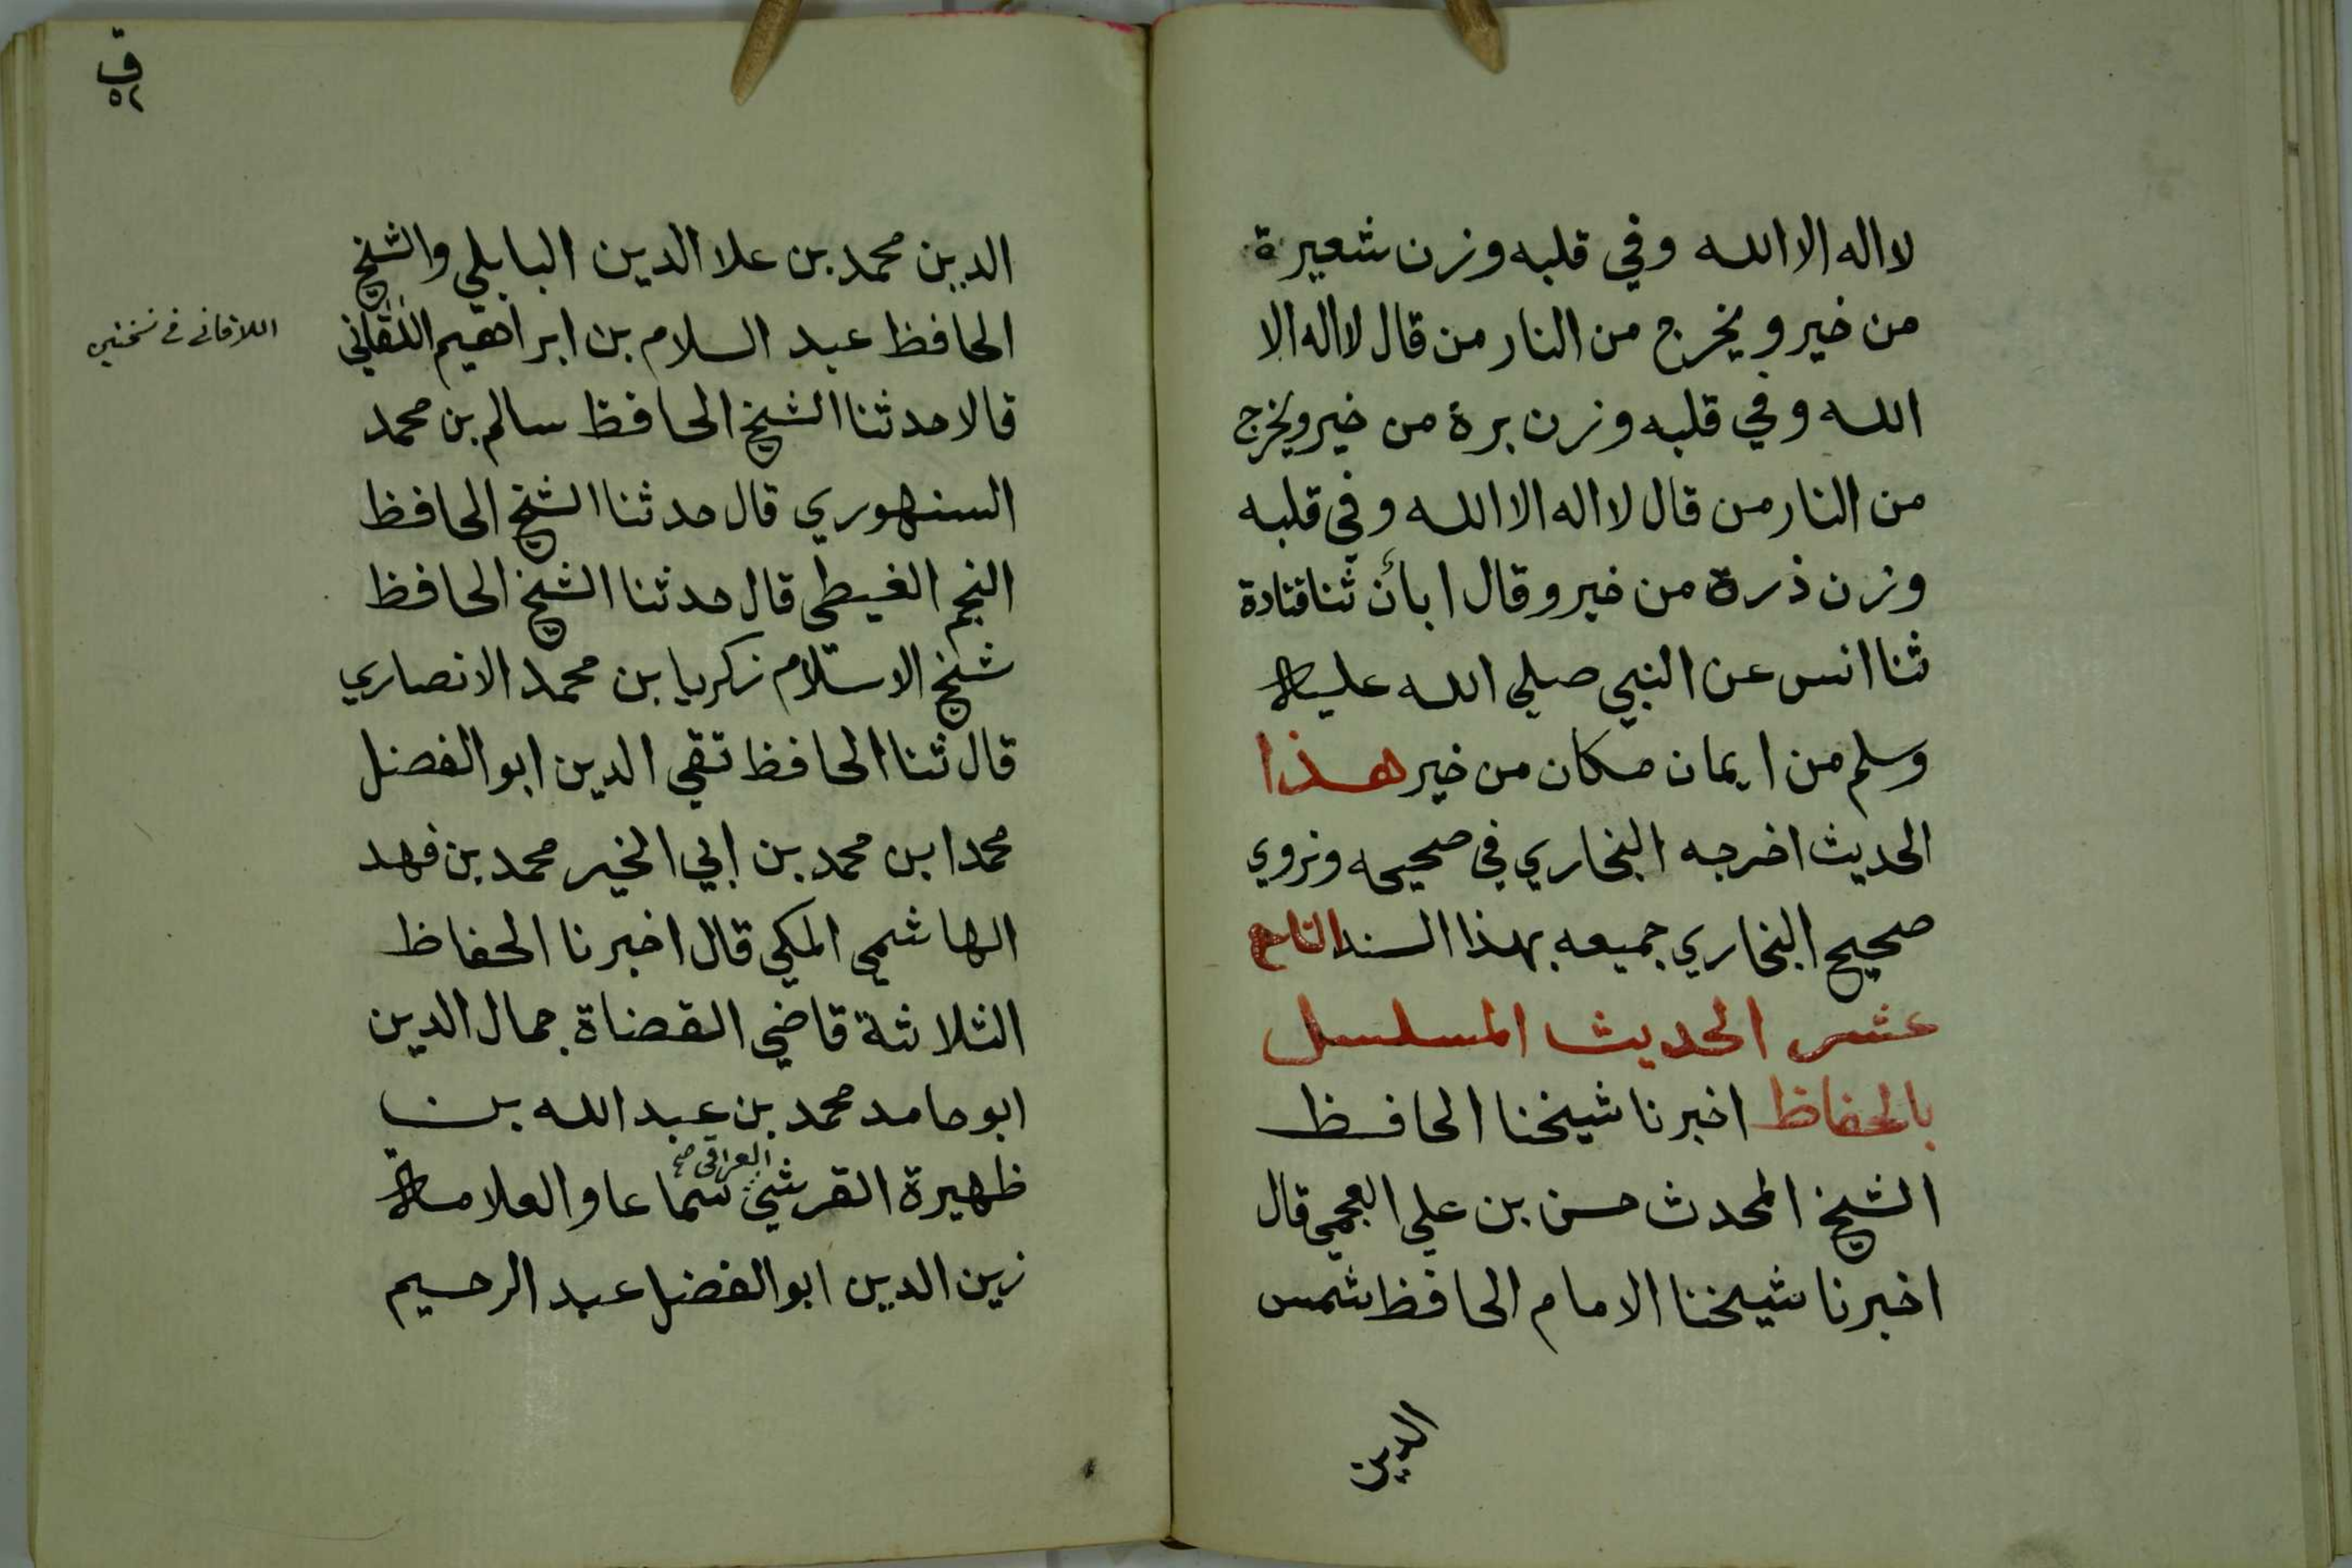 لا اله الا الله وفي قلبه وزن شعيرة
من خير ويخرج من النار من قال لا اله الا
الله وفي قلبه وزن برة من خير ويخرج
من النار من قال لا اله الا الله وفي قلبه
وزن ذرة من خير وقال ابأن ثنا قتادة
ثنا انس عن النبي صلي الله عليه
وسلم من ايمان مكان من خير هذا
الحديث اخرجه البخاري في صحيحه ونروي
صحيح البخاري جميعه بهذا السند التاسع
عشر الحديث المسلسل
بالحفاظ اخبرنا شيخنا الحافظ
الشيخ المحدث حسن بن علي العجمي قال
اخبرنا شيخنا الامام الحافظ شمس
الدين
ق
٥٢
الدين محمد بن علا الدين البابلي والشيخ
الحافظ عبد السلام بن ابراهيم اللقاني
اللاقاني في نسختين
قالا حدثنا الشيخ الحافظ سالم بن محمد
السنهوري قال حدثنا الشيخ الحافظ
النجم الغيطي قال حدثنا الشيخ الحافظ
شيخ الاسلام زكريا بن محمد الانصاري
قال ثنا الحافظ تقي الدين ابو الفضل
محمد ابن محمد بن ابي الخير محمد بن فهد
الهاشمي المكي قال اخبرنا الحفاظ
الثلاثة قاضي القضاة جمال الدين
ابو حامد محمد بن عبد الله بن
ظهيرة القرشي سماعا والعلامة
العراقي صح
زين الدين ابو الفضل عبد الرحيم